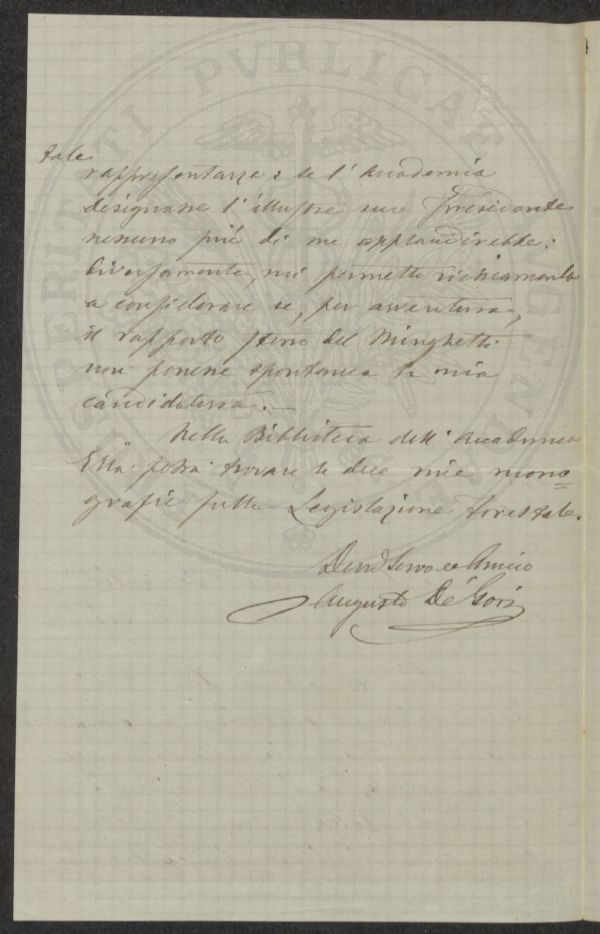 PROSPERITATI PVBLICAE AVGENDAE
tale
rappresentanza: se l'Accademia
designasse l'illustre suo Presidente
nessuno più di me applaudirebbe:
diversamente, mi permetto richiamarla
a considerare se, per avventura,
il rapporto stesso del Minghetti
non ponesse spontanea la mia
candidatura.—
Nella Biblioteca dell'Accademia
Ella potrà trovare le due mie mono=
grafie sulla Legislazione forestale.
Devmo Servo ed Amico
Augusto De' Gori